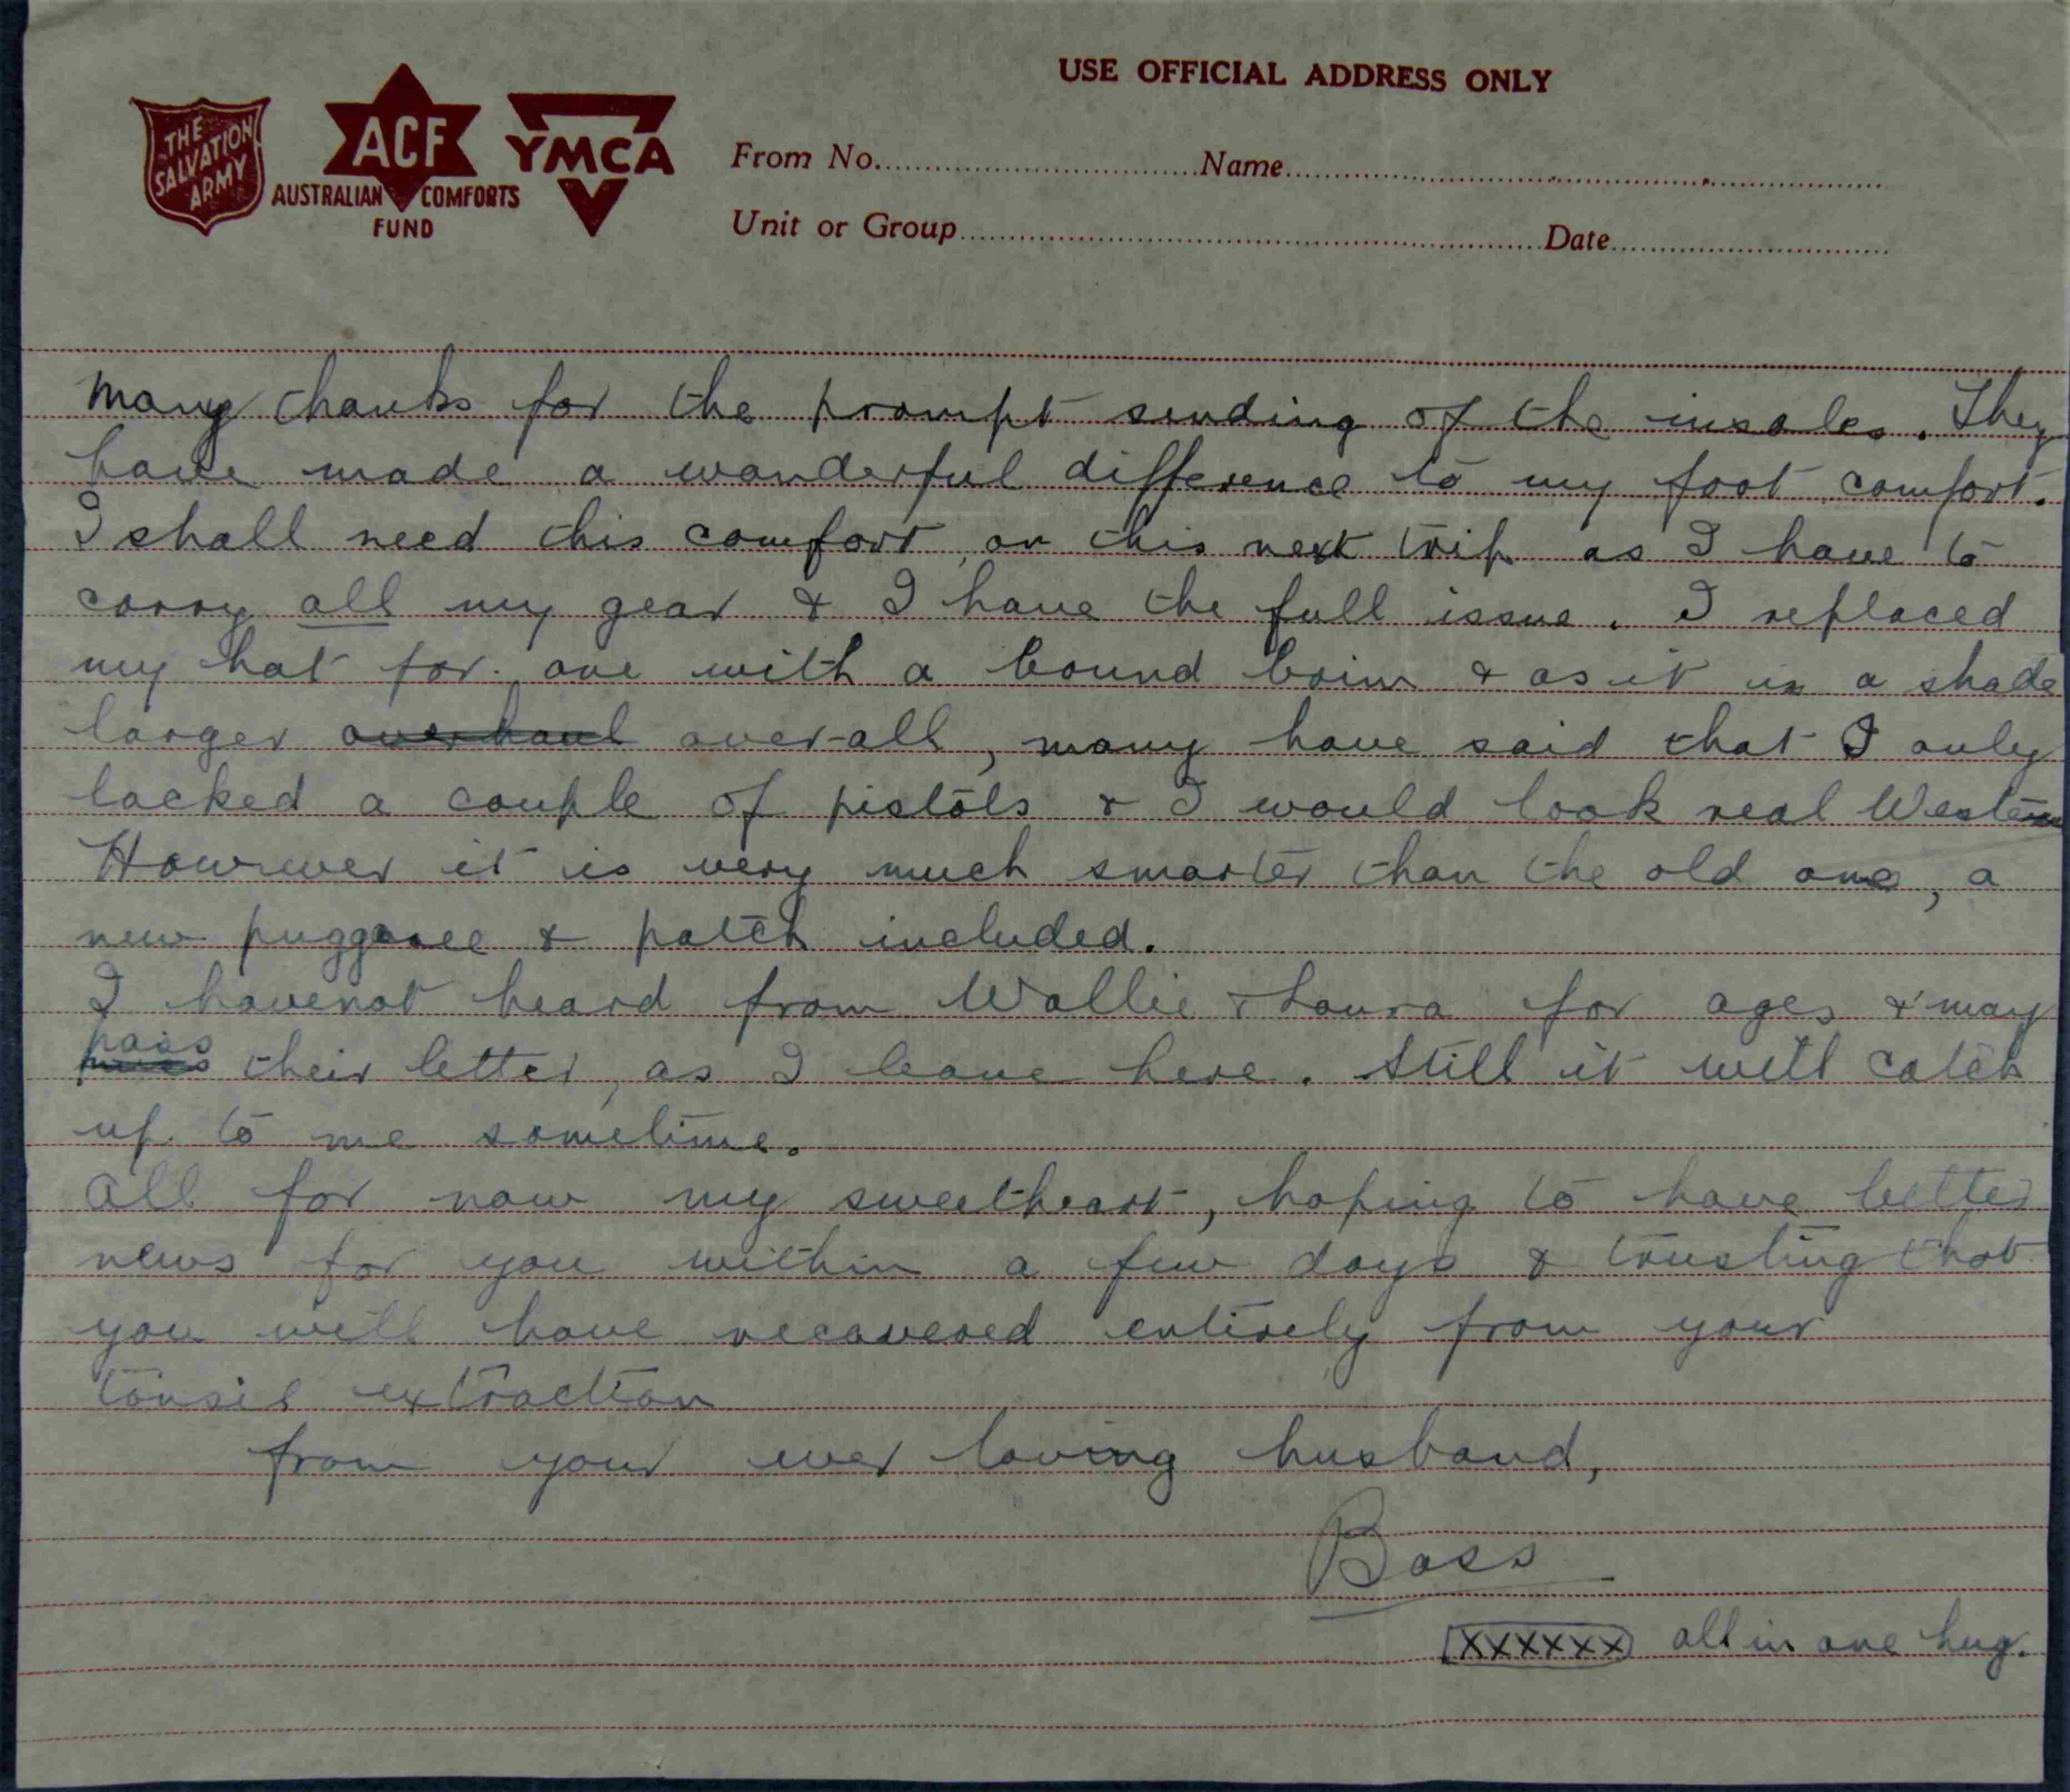 USE OFFICIAL ADDRESS ONLY
THE SALVATION ARMY
ACF
AUSTRALIAN COMFORTS FUND
YMCA
From No. Name
Unit or Group Date
Many thanks for the prompt sending of the insoles. They
have made a wonderful difference to my foot comfort.
I shall need this comfort, on this next trip as I have to
carry all my gear & I have the full issue. I replaced
my hat for one with a bound brim & as it is a shade
larger overhaul over-all, many have said that I only
lacked a couple of pistols & I would look real Western
However it is very much smarter than the old one, a
new puggaree & patch included.
I havenot heard from Wallie & Laura for ages & may
pass their letter, as I leave here. Still it will catch
up to me sometime.
All for now my sweetheart, hoping to have better
news for you within a few days & trusting that
you will have recovered entirely from your
tonsil extraction
from your ever loving husband,
Boss
xxxxxx all in one hug.